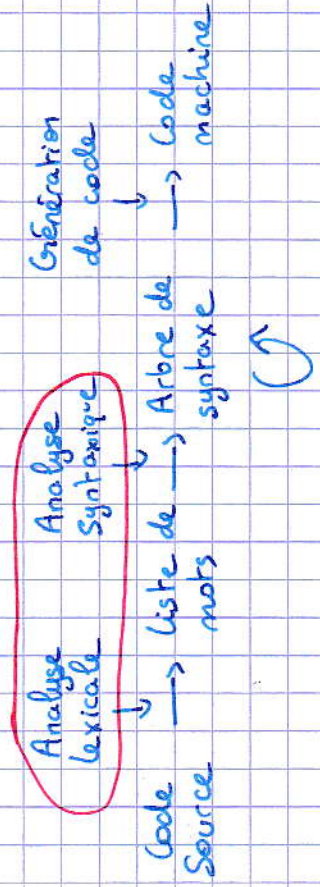 Analyse
Lexicale
Analyse
Syntaxique
Génération
de code
Code
Source
→ Liste de
mots
→ Arbre de
syntaxe
→ Code
machine